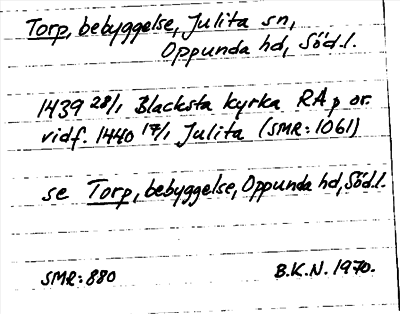 Torp, bebyggelse, Julita sn,
Oppunda hd, Södl.
1439 28/1 Blacksta kyrka RA p or.
vidf. 1440 17/1 Julita (SMR: 1061)
se Torp, bebyggelse, Oppunda hd, Södl.
SMR: 880
B.K.N. 1970.